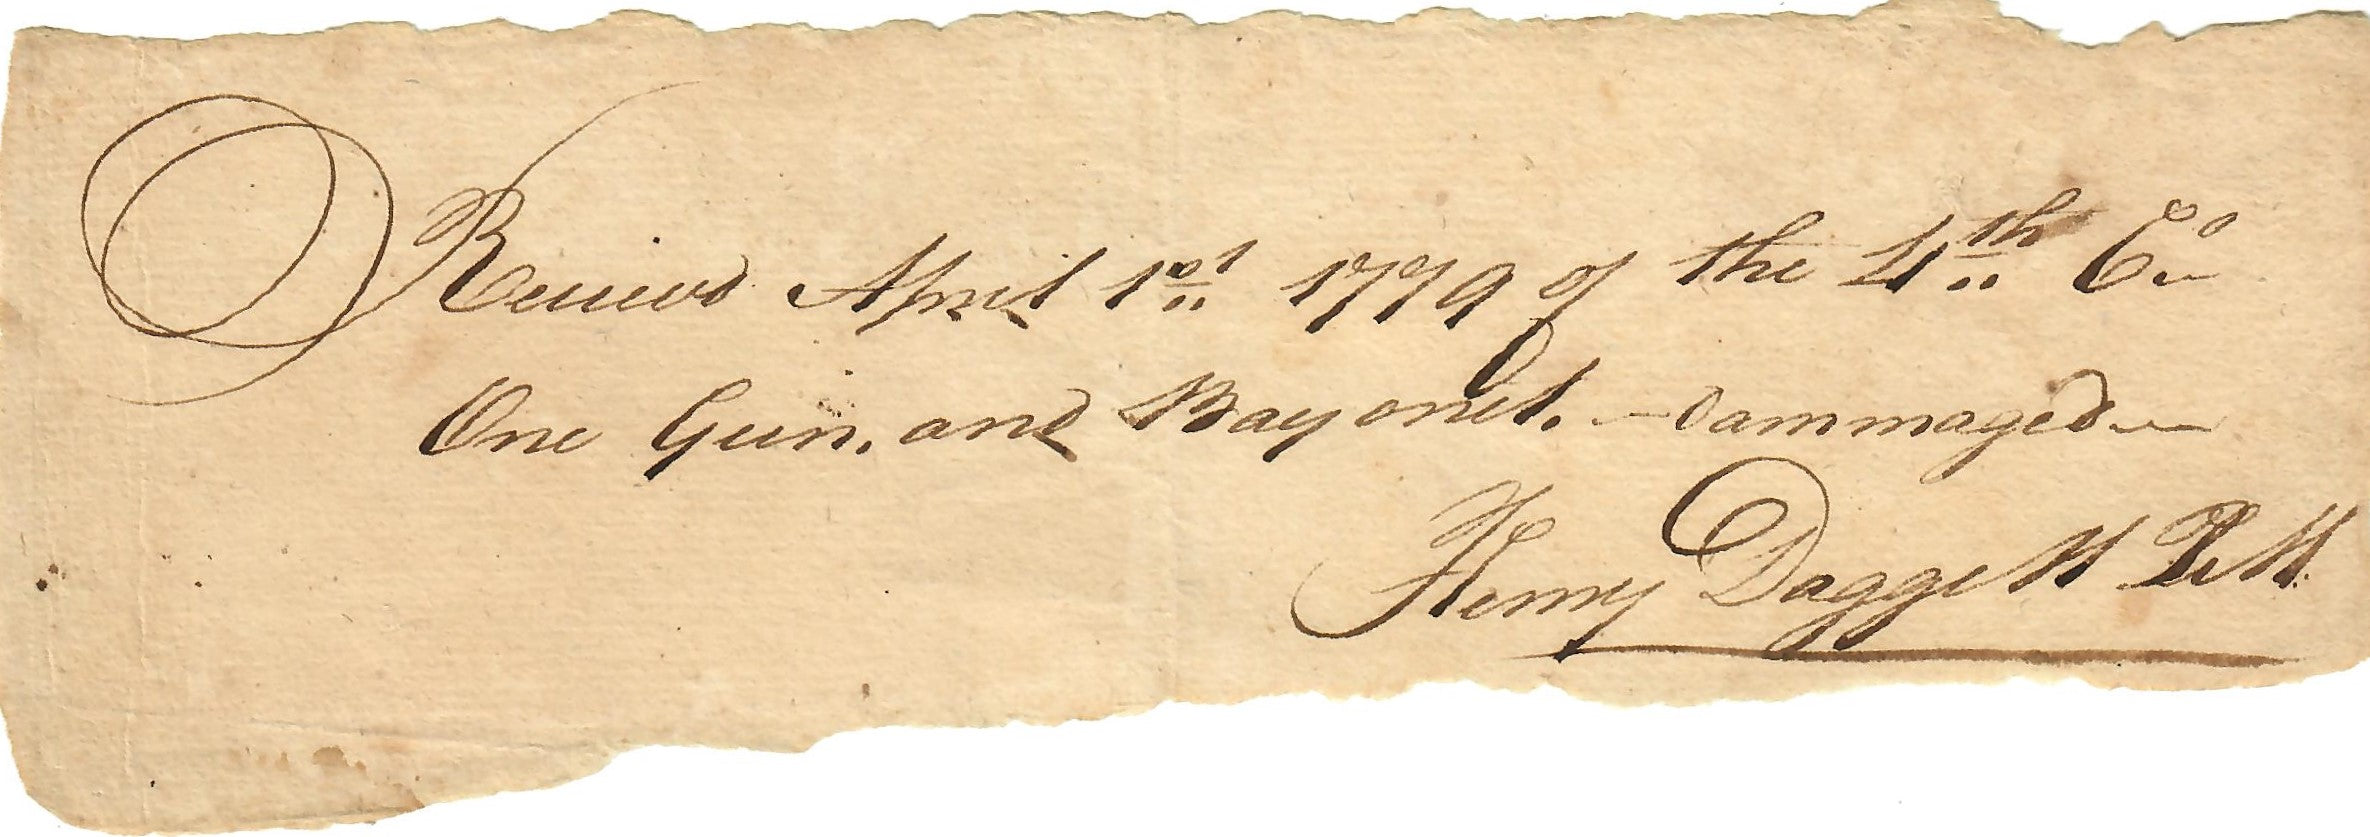 Receievd April 1st 1779 of the 4th Co
One Gun, and Bayonet. – dammaged –
Henry Daggett